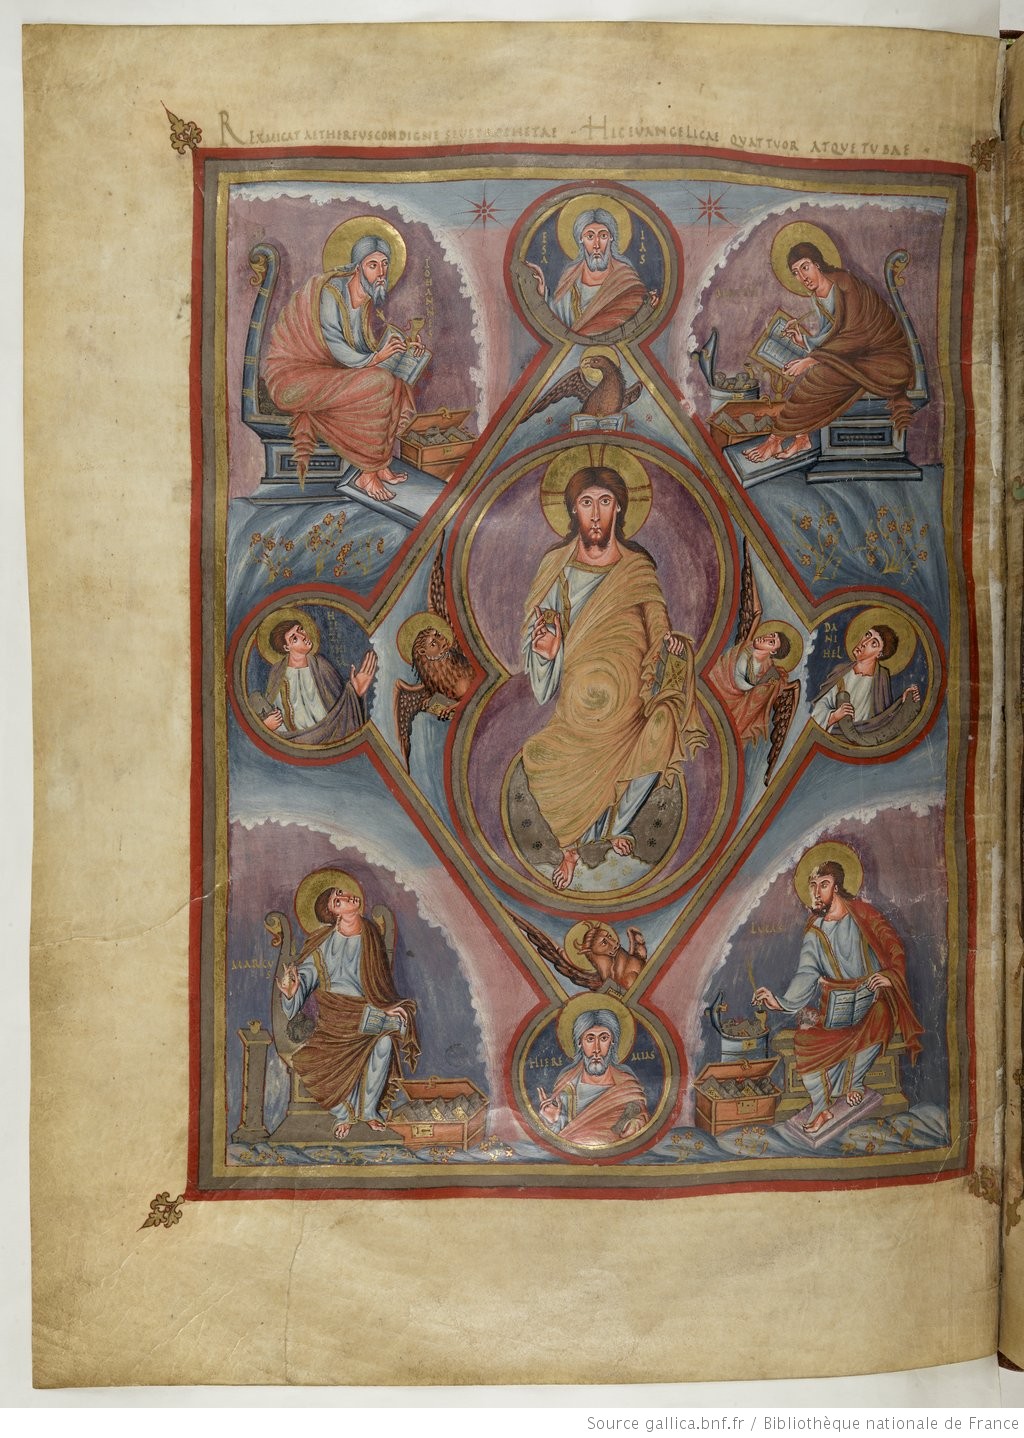 REX MICAT AETHEREUS CONDIGNE SIVE PROPHETAE HIC EVANGELICAE QUATTUOR ATQUE TUBAE
ESA IAS
IOHANNES
DANIHEL
MARCUS
LUCAS
HIERE MIAS
Source gallica.bnf.fr / Bibliothèque nationale de France